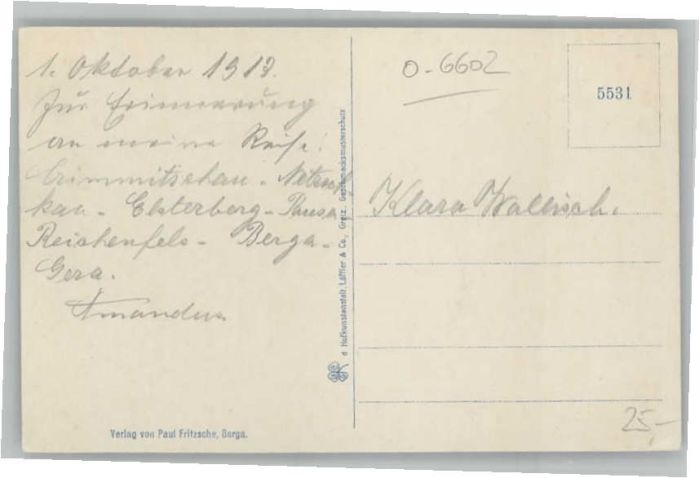 1. Oktober 1913.
Zur Erinnerung
an meine Reise:
Crimmitschau - Netzsch
kau - Elsterberg - Pausa
Reichenfels - Berga -
Gera.
Amandus
Verlag von Paul Fritzsche, Berga.
Hofkunstanstalt Löffler & Co., Greiz. Geschmacksmusterschutz
0-6602
5531
Klara Wallisch.
25,-